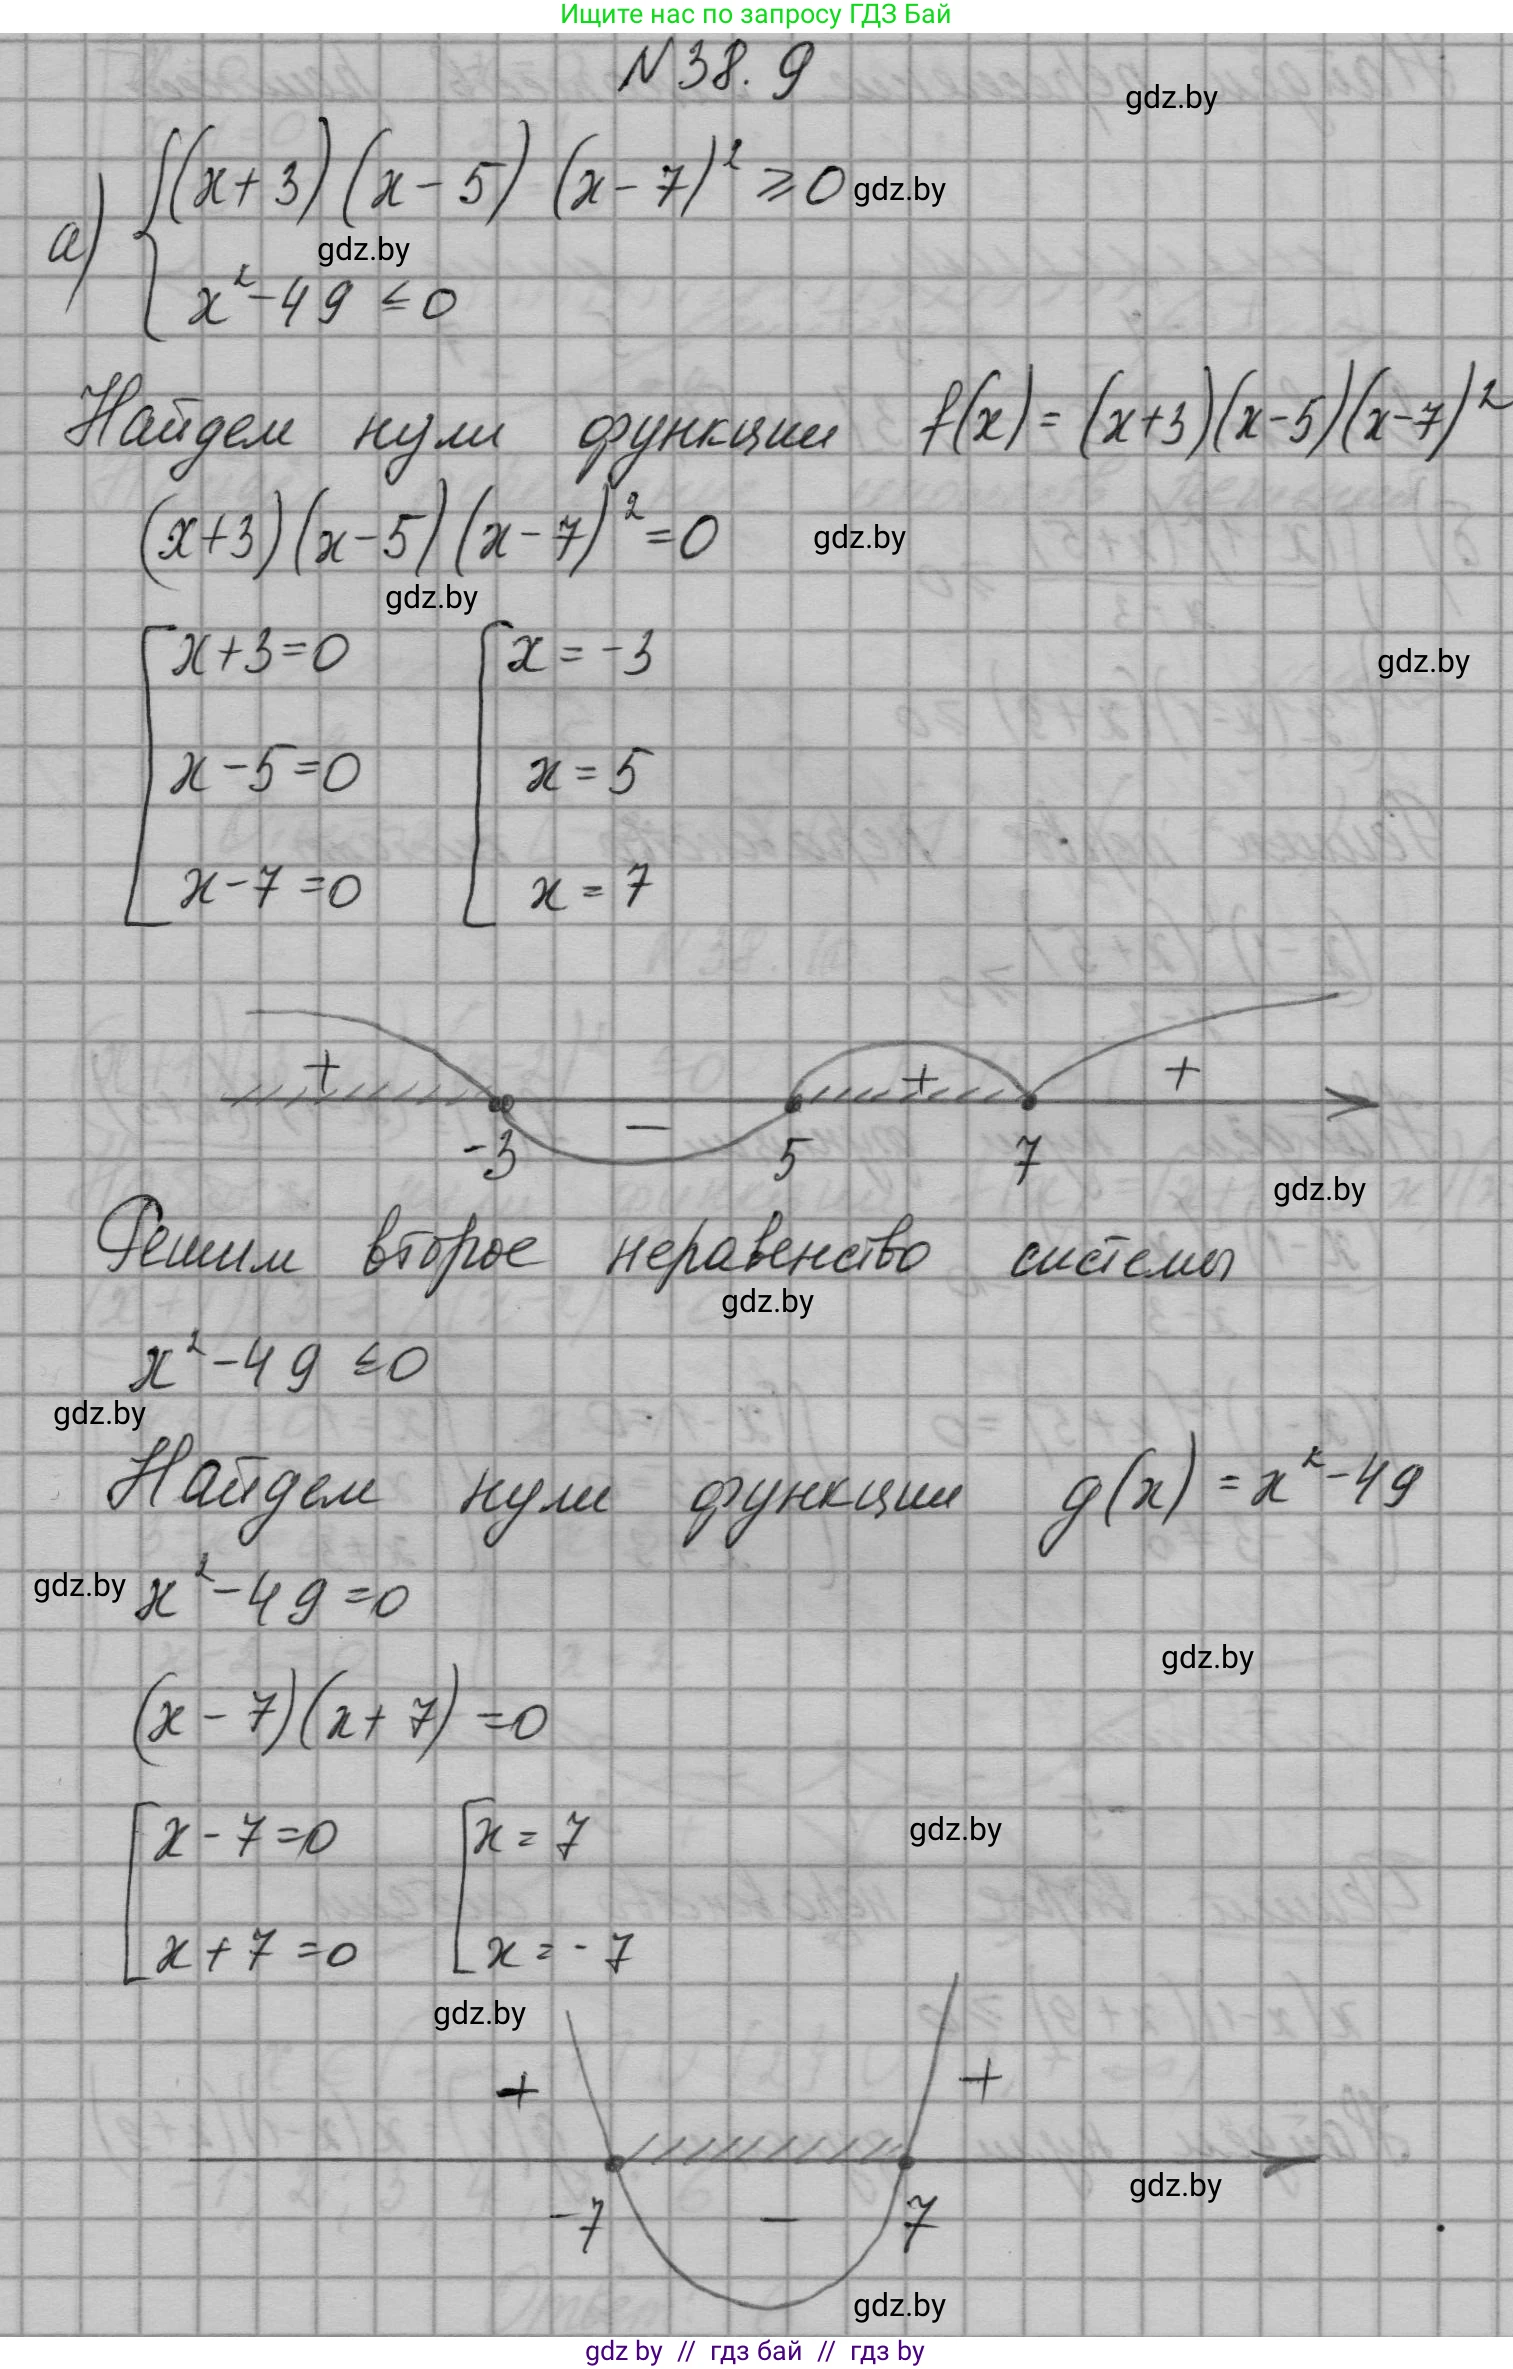 Ищите нас по запросу ГДЗ Бай
N 38. 9
gdz.by
а) { (x+3)(x-5)(x-7)² ≥ 0
gdz.by
gdz.by
x²-49 ≤ 0
Найдем нули функции f(x) = (x+3)(x-5)(x-7)²
(x+3)(x-5)(x-7)² = 0
gdz.by
gdz.by
[ x+3=0 [ x = -3
gdz.by
x-5=0 x = 5
x-7=0 x = 7
+ - + +
-3 5 7
gdz.by
Решим второе неравенство системы
gdz.by
x²-49 ≤ 0
gdz.by
Найдем нули функции g(x) = x²-49
gdz.by x²-49=0
gdz.by
(x-7)(x+7)=0
[ x-7=0 [ x = 7
gdz.by
x+7=0 x = -7
gdz.by
+ +
gdz.by
-7 - 7
gdz.by
gdz by // гдз бай // гдз by